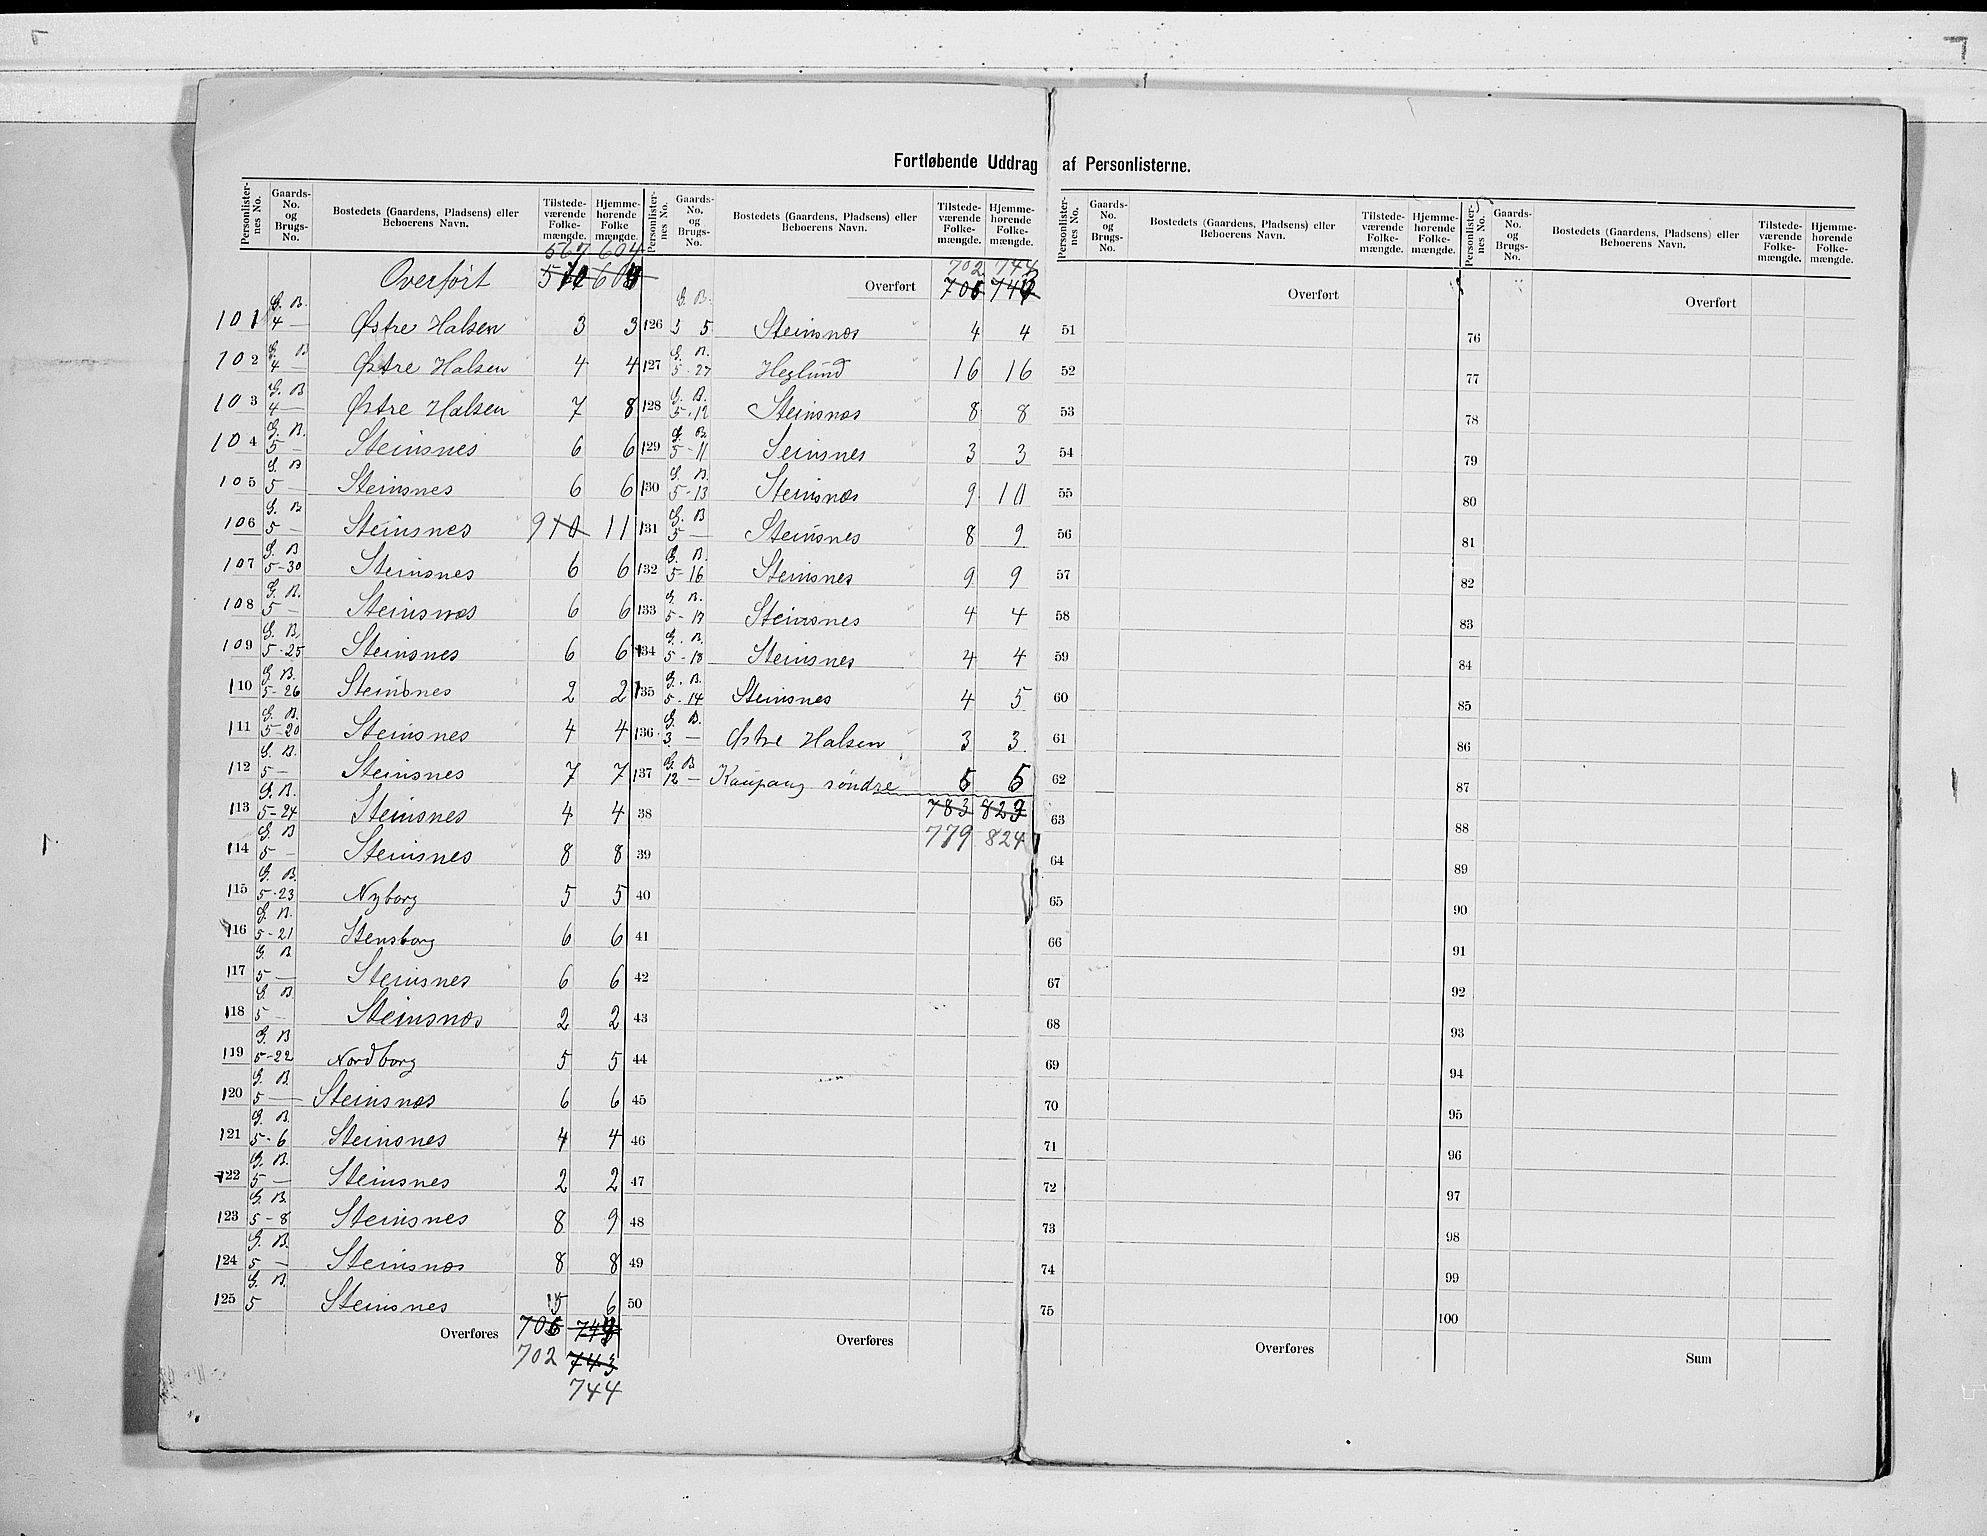 Fortløbende Uddrag af Personlisterne.
Personlister-nes No. Gaards-No. og Brugs-No. Bostedets (Gaardens, Pladsens) eller Beboerens Navn. Tilstede-værende Folke-mængde. Hjemme-hørende Folke mængde.
567 604
Overført
G. B.
101 4 — Østre Halsen 3 3
G. B
102 4 — Østre Halsen 4 4
G. B
103 4 — Østre Halsen 7 8
G. B.
104 5 — Steinsnes 6 6
G. B
105 5 — Steinsnes 6 6
G. B
106 5 — Steinsnes 9 10 11
G. B
107 5-30 Steinsnes 6 6
G. B.
108 5 — Steinsnæs 6 6
G. B.
109 5-25 Steinsnes 6 6
G. B.
110 5-26 Steinsnes 2 2
G. B.
111 5-20 Steinsnes 4 4
G. B.
112 5 — Steinsnes 7 7
G. B.
113 5-24 Steinsnes 4 4
G. B
114 5 — Steinsnes 8 8
G. B.
115 5-23 Nyborg 5 5
G. B.
116 5-21 Stensborg 6 6
G. B
117 5 — Steinsnes 6 6
G. B.
118 5 — Steinsnæs 2 2
G. B
119 5-22 Nordborg 5 5
G. B.
120 5 — Steinsnæs 6 6
G. B.
121 5-6 Steinsnes 4 4
G. B.
122 5 — Steinsnes 2 2
G. B.
123 5-8 Steinsnes 8 9
G. B.
124 5 — Steinsnæs 8 8
G. B.
125 5 Steinsnes 5 6
Overføres
702 743
744
Personlister-nes No. Gaards-No. og Brugs-No. Bostedets (Gaardens, Pladsens) eller Beboerens Navn. Tilstede-værende Folke-mængde. Hjemme-hørende Folke-mængde.
702 744
Overført
G. B.
126 5 5 Steinsnæs 4 4
G. B.
127 5-27 Heglund 16 16
G. B.
128 5-12 Steinsnæs 8 8
G. B.
129 5-11 Seinsnes 3 3
G. B.
130 5-13 Steinsnæs 9 10
G. B
131 5 — Steinsnes 8 9
G. B.
132 5-16 Steinsnes 9 9
G. B.
133 5-17 Steinsnes 4 4
G. B.
134 5-18 Steinsnes 4 4
G. B.
135 5-14 Steinsnes 4 5
G. B.
136 3 — Østre Halsen 3 3
G. B
137 12 — Kaupang søndre 5 5
38 783 823
779 824
39
40
41
42
43
44
45
46
47
48
49
50
Overføres
Personlister-nes No. Gaards-No. og Brugs-No. Bostedets (Gaardens, Pladsens) eller Beboerens Navn. Tilstede-værende Folke-mængde. Hjemme-hørende Folke-mængde.
Overført
51
52
53
54
55
56
57
58
59
60
61
62
63
64
65
66
67
68
69
70
71
72
73
74
75
Overføres
Personlister-nes No. Gaards-No. og Brugs-No. Bostedets (Gaardens, Pladsens) eller Beboerens Navn. Tilstede-værende Folke-mængde. Hjemme-hørende Folke-mængde.
Overført
76
77
78
79
80
81
82
83
84
85
86
87
88
89
90
91
92
93
94
95
96
97
98
99
100
Sum